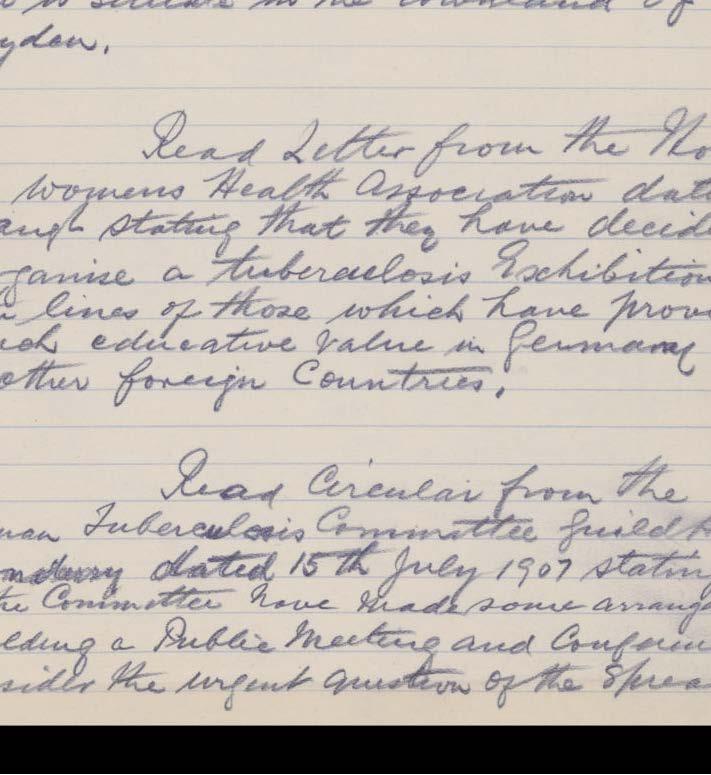 in the townland of
yden.
Read Letter from the
womens Health Association dat
stating that they have decid
ganise a tuberculosis Exhibition
lines of those which have prov
ch educative value in Germany
other foreign Countries.
Read Circular from the
man Tuberculosis Committee Guild H
dated 15th July 1907 statin
the Committee have made some arrang
lding a Public Meeting and Conferen
sider the urgent question of the Sprea